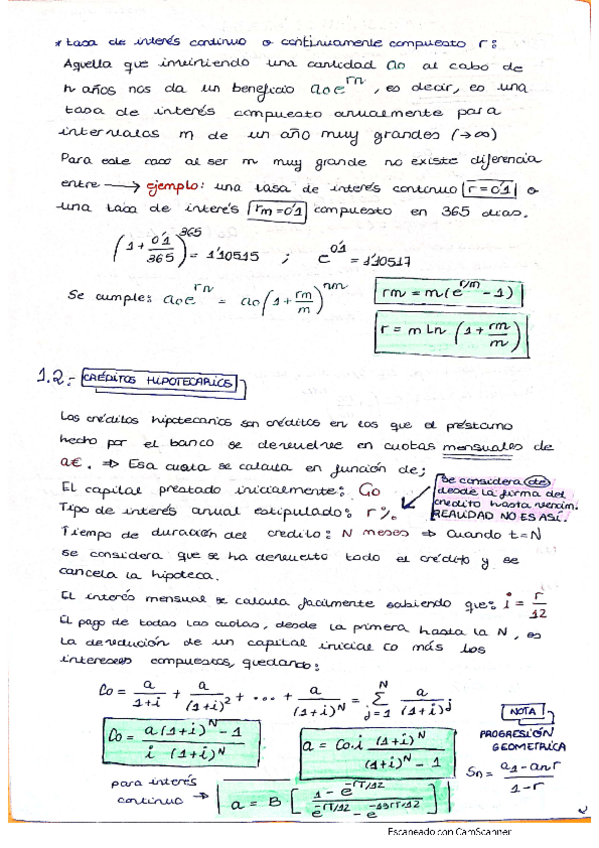 * tasa de interés continuo o continuamente compuesto r:
Aquella que invirtiendo una cantidad a0 al cabo de
n años nos da un beneficio a0e^rn, es decir, es una
tasa de interés compuesto anualmente para
intervalos m de un año muy grandes (→∞)
Para este caso al ser m muy grande no existe diferencia
entre → ejemplo: una tasa de interés continuo r=0'1 o
una tasa de interés rm=0'1 compuesto en 365 días.
(1+0'1/365)^365 = 1'10515 ; e^0'1 = 1'10517
Se cumple: a0e^rn = a0(1+rm/m)^nm
rm = m(e^r/m - 1)
r = m Ln (1+rm/m)
1.2.- CRÉDITOS HIPOTECARIOS
Los créditos hipotecarios son créditos en los que el préstamo
hecho por el banco se devuelve en cuotas mensuales de
a€. ⇒ Esa cuota se calcula en función de;
El capital prestado inicialmente: Co
Tipo de interés anual estipulado: r%
Se considera cte
desde la firma del
credito hasta vencim.
REALIDAD NO ES ASÍ.
Tiempo de duración del credito: N meses ⇒ Cuando t=N
se considera que se ha devuelto todo el crédito y se
cancela la hipoteca.
El interés mensual se calcula facilmente sabiendo que: i = r/12
El pago de todas las cuotas, desde la primera hasta la N, es
la devolución de un capital inicial Co más los
intereses compuestos, quedando:
Co = a/1+i + a/(1+i)^2 + ... + a/(1+i)^N = Σ j=1 N a/(1+i)^j
Co = a(1+i)^N - 1 / i (1+i)^N
a = Co·i (1+i)^N / (1+i)^N - 1
NOTA
PROGRESIÓN
GEOMETRICA
Sn = a1-anr / 1-r
para interés
continuo →
a = B [1 - e^-rT/12 / e^-rT/12 - e^-13rT/12]
Escaneado con CamScanner